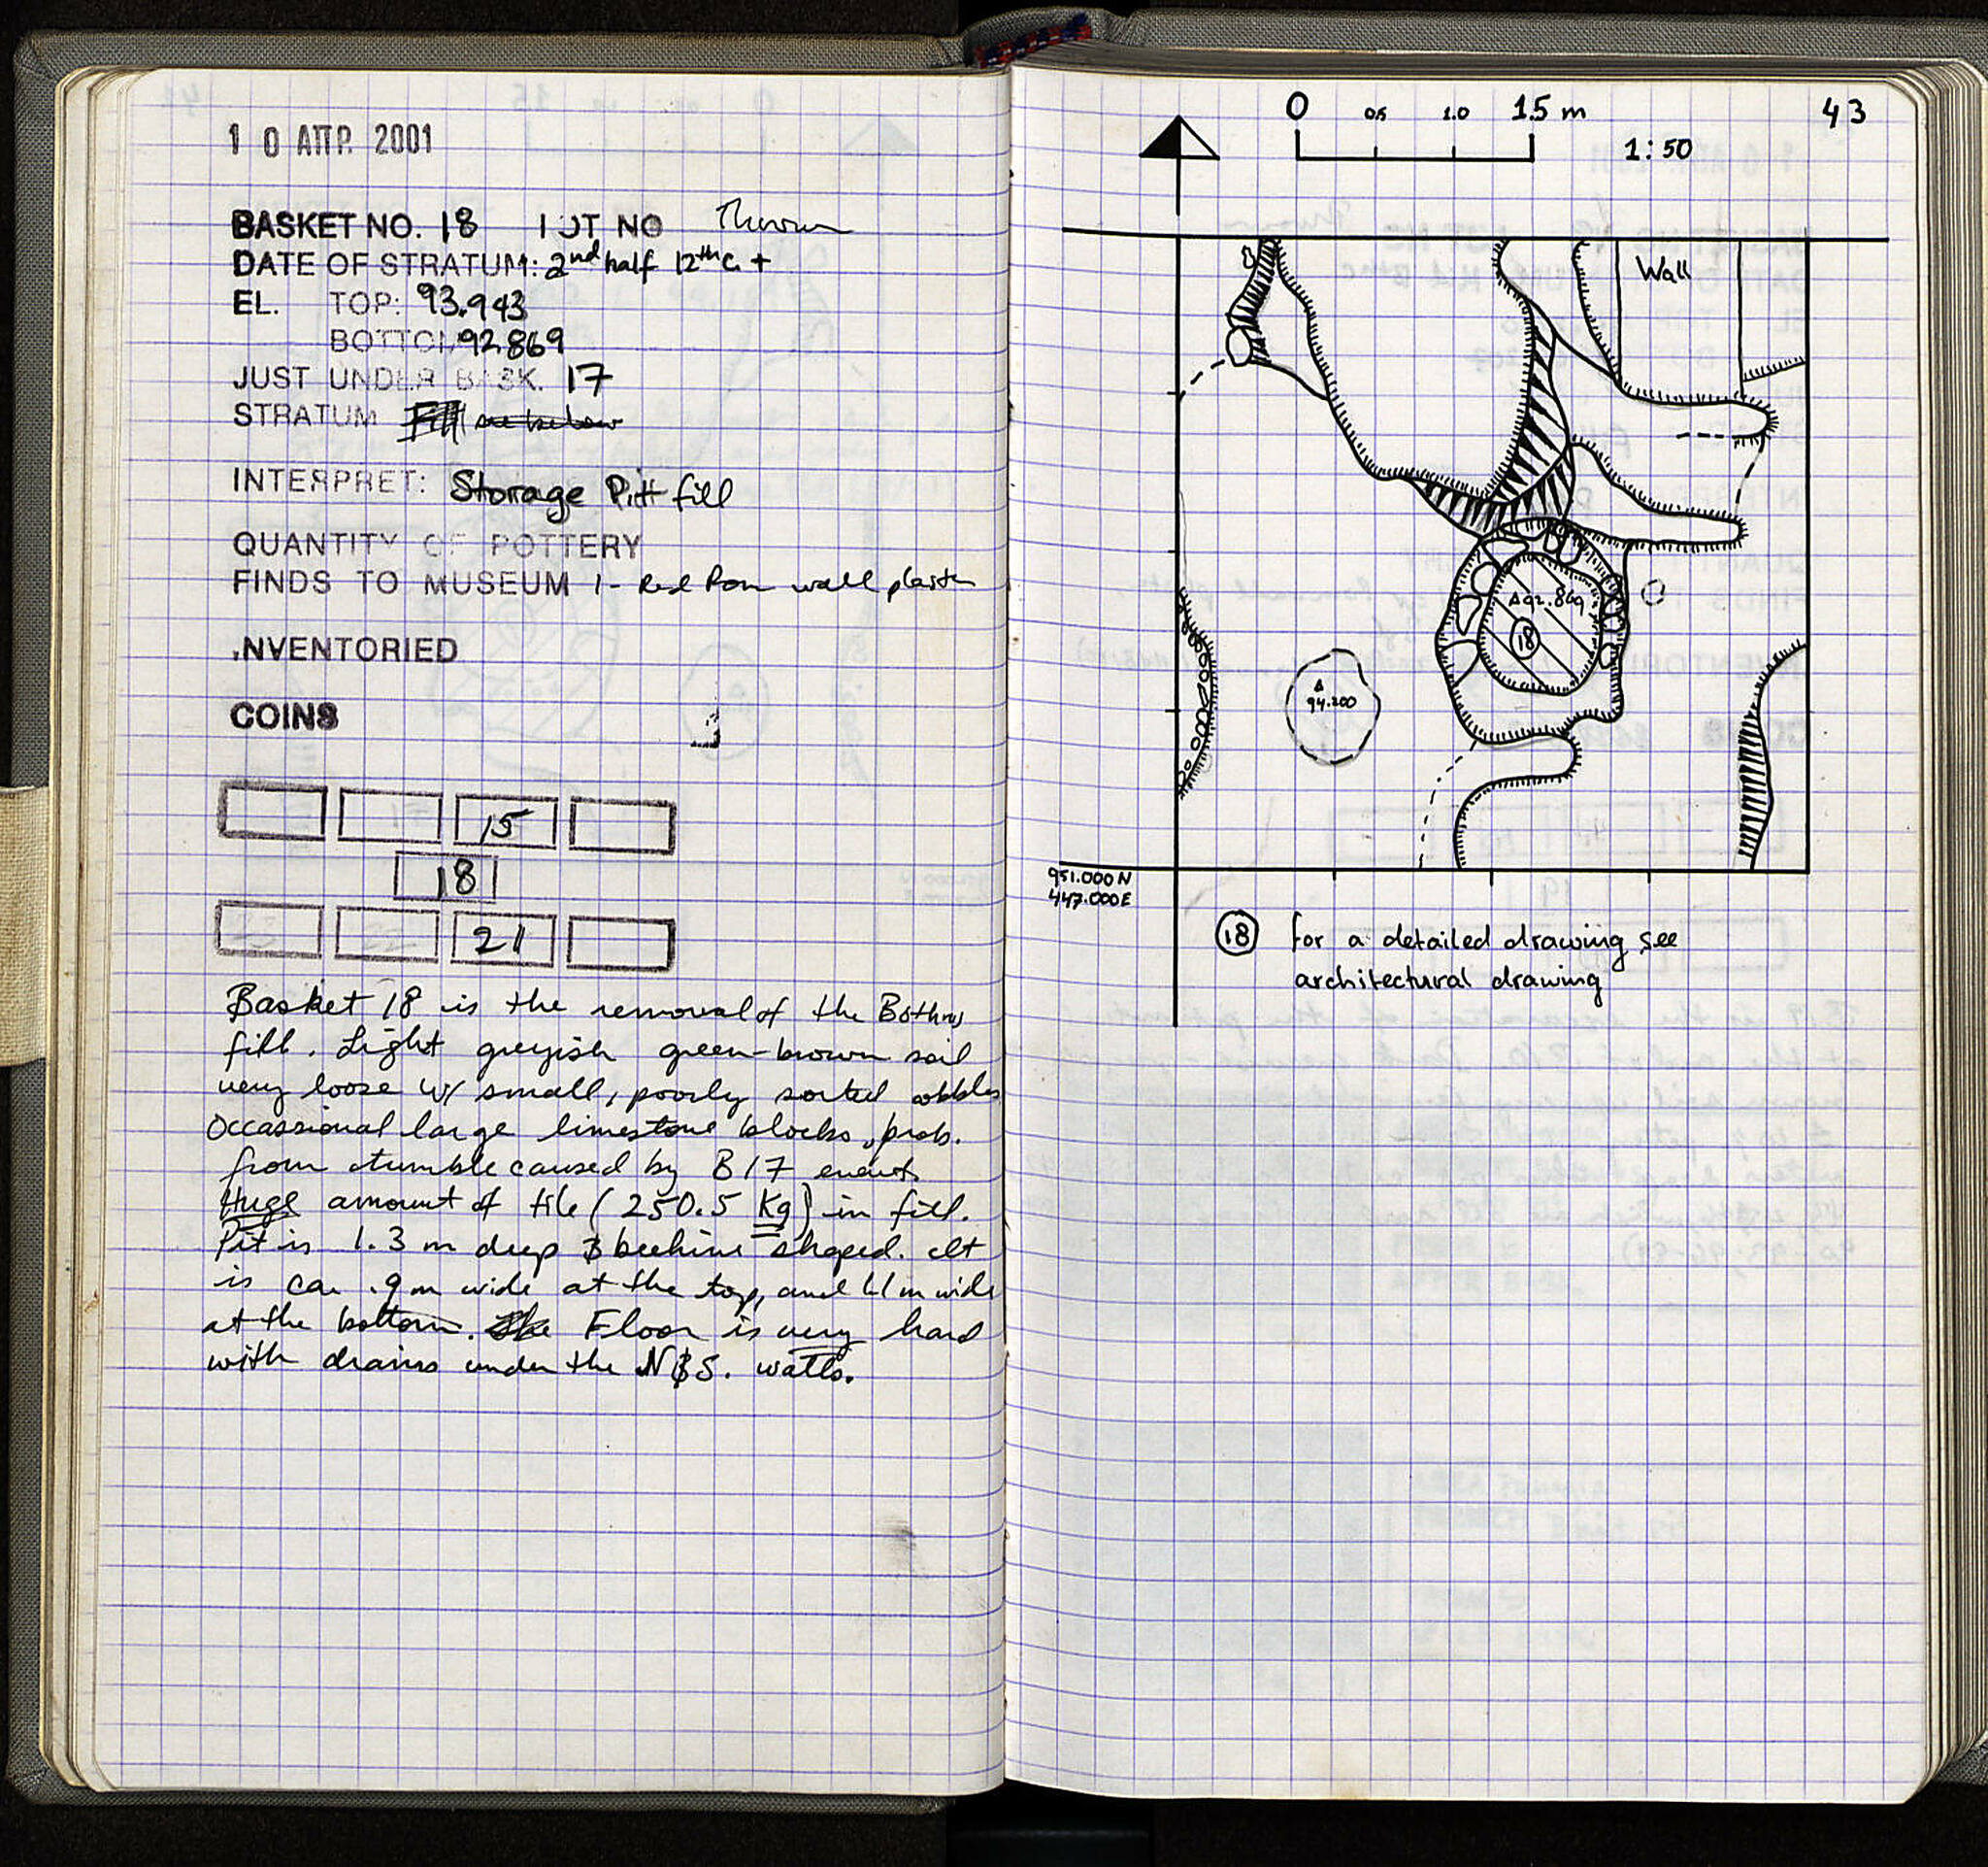 1 0 ΑΠΡ. 2001
BASKET NO. 18 LOT NO Thrown
DATE OF STRATUM: 2nd half 12th c. +
EL. TOP: 93.943
BOTTOM 92.869
JUST UNDER BASK. 17
STRATUM Fill see below
INTERPRET: Storage Pitt fill
QUANTITY OF POTTERY
FINDS TO MUSEUM 1 - Red Rom wall plaster
INVENTORIED
COINS
15
18
23 22 21
Basket 18 is the removal of the Bothros
fill. Light greyish green-brown soil
very loose w/ small, poorly sorted cobbles
Occassional large limestone blocks, prob.
from tumble caused by B17 event.
Huge amount of tile (250.5 Kg) in fill.
Pit is 1.3 m deep & beehive shaped. It
is ca. .9 m wide at the top, and 1.1 m wide
at the bottom. The Floor is very hard
with drains under the N & S. walls.
43
0 0.5 1.0 1.5 m
1:50
8
Wall
92.869
18
94.200
951.000 N
447.000 E
18 for a detailed drawing see
architectural drawing